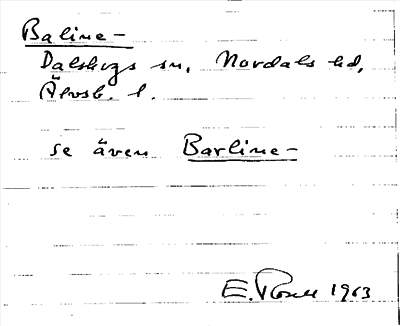 Baline-
Dalskogs sn, Nordals hd,
Älvsb. l.
se även Barline-
E. Rosell 1963